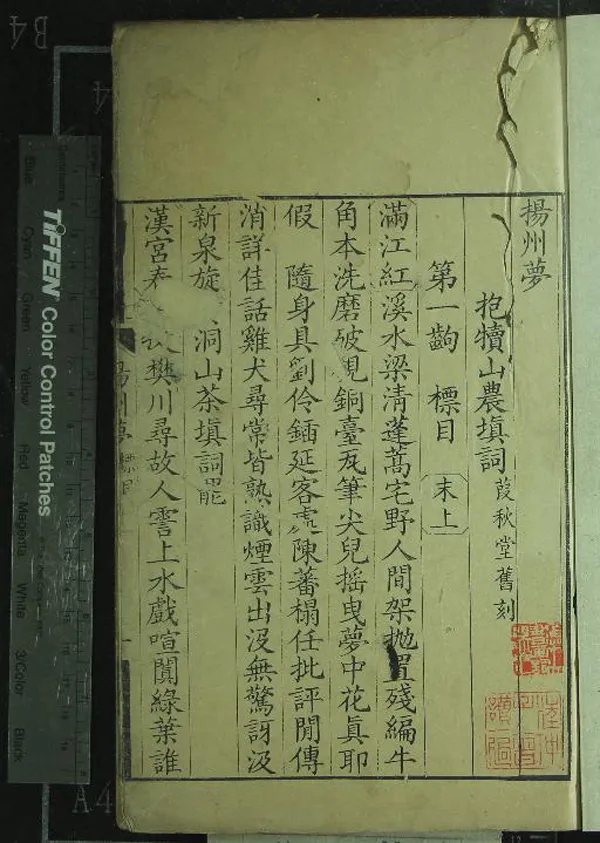 揚州夢
抱犢山農填詞 葭秋堂舊刻
第一齣 標目 末上
滿江紅溪水梁清蓬蒿宅野人間架拋置殘編牛
角本洗磨破硯銅臺瓦筆尖兒搖曳夢中花眞耶
假 隨身具劉伶鍤延客處陳蕃榻任批評閒傳
消詳佳話雞犬尋常皆熟識煙雲出沒無驚訝汲
新泉旋 洞山茶填詞罷
漢宮春 樊川尋故人霅上水戲喧闐綠葉誰
揚州夢 標目
一
TIFFEN Color Control Patches
Blue
Cyan
Green
Yellow
Red
Magenta
White
3/Color
Black
B4
A4